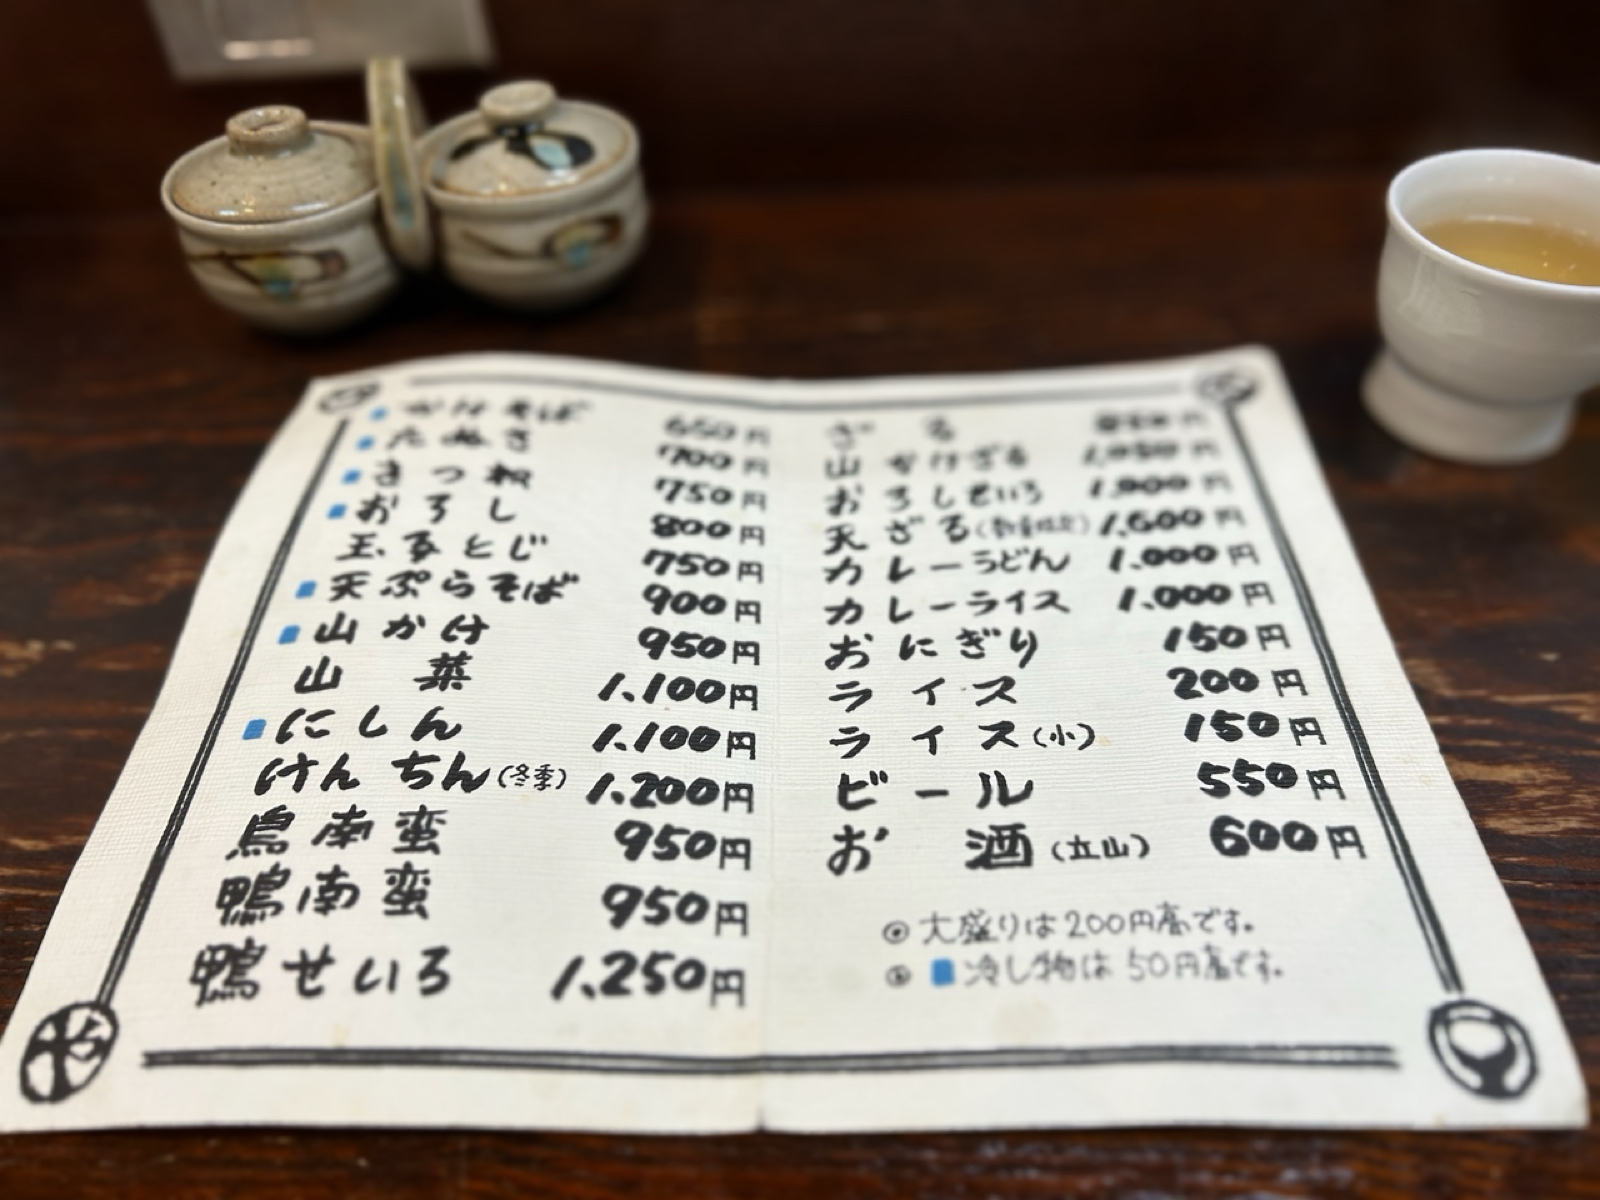 かけそば 650円
たぬき 700円
きつね 750円
おろし 800円
玉子とじ 750円
天ぷらそば 900円
山かけ 950円
山菜 1.100円
にしん 1.100円
けんちん(冬季) 1.200円
鳥南蛮 950円
鴨南蛮 950円
鴨せいろ 1.250円
ざる 円
山かけざる 1,050円
おろしせいろ 円
天ざる(数量限定) 1.600円
カレーうどん 1.000円
カレーライス 1.000円
おにぎり 150円
ライス 200円
ライス(小) 150円
ビール 550円
お酒(立山) 600円
◎大盛りは200円高です。
◎冷し物は50円高です。